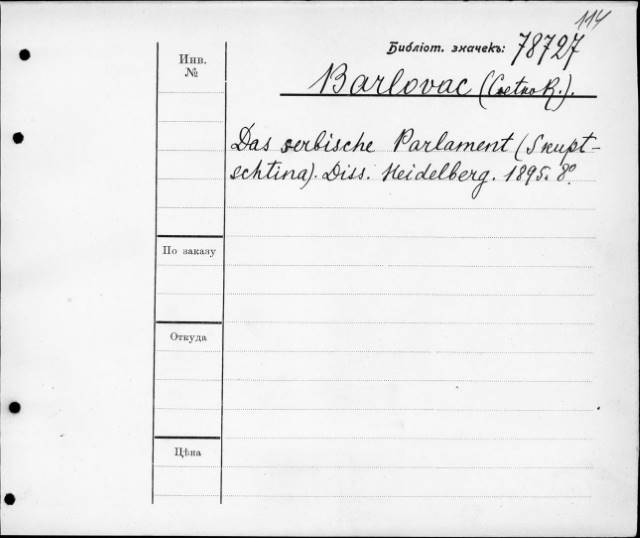 114
Библіот. значекъ: 78727
Инв.
№
Barlovac (Cvetko R.).
Das serbische Parlament (Skupt-
schtina). Diss. Heidelberg. 1895. 8°.
По заказу
Откуда
Цѣна